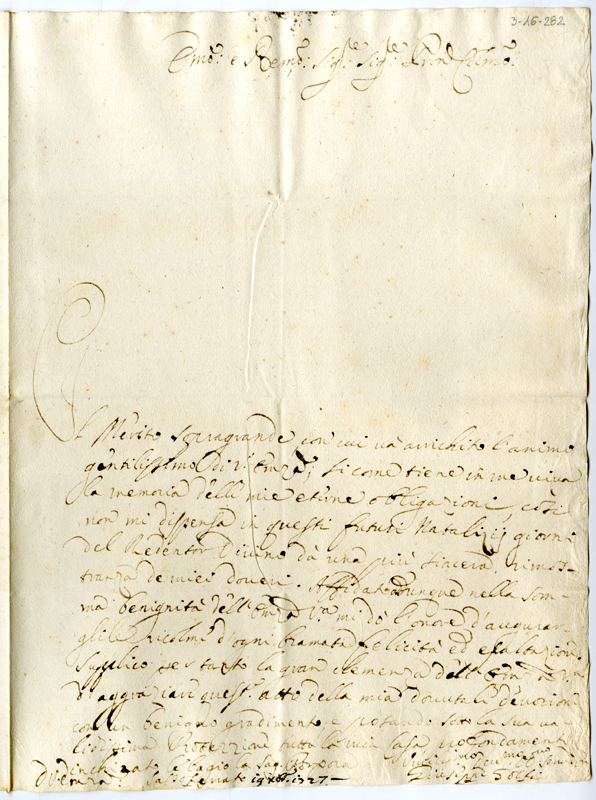 3-16-282
Emo: e Remo: Sigr: Sigr: Prōn Colmo:
Il Merito sovragrande, con cui và arrichito l'animo
gentilissimo di V: Emza, si come tiene in me viva
la memoria dell mie eterne obligazioni, così
non mi dispensa in questi futuri Natalizij giorni
del Redentor Divino dà una più sincera rimos-
tranza de miei doveri. Affidato dunque nella som-
ma benignità dell'Emza Va: mi dò l'onore d'augurar-
gli ricolmi d'ogni bramata felicità ed esaltazioni
Supplico per tanto la gran clemenza dell' Emza
d'aggraziare quest' atto della mia dovuta devozione
con un benigno gradimento, e
Protezzione tutta la mia casa profondamente
inchinato bagio la Sag: Porpora
Di V: Emza: 1727
Giuseppe